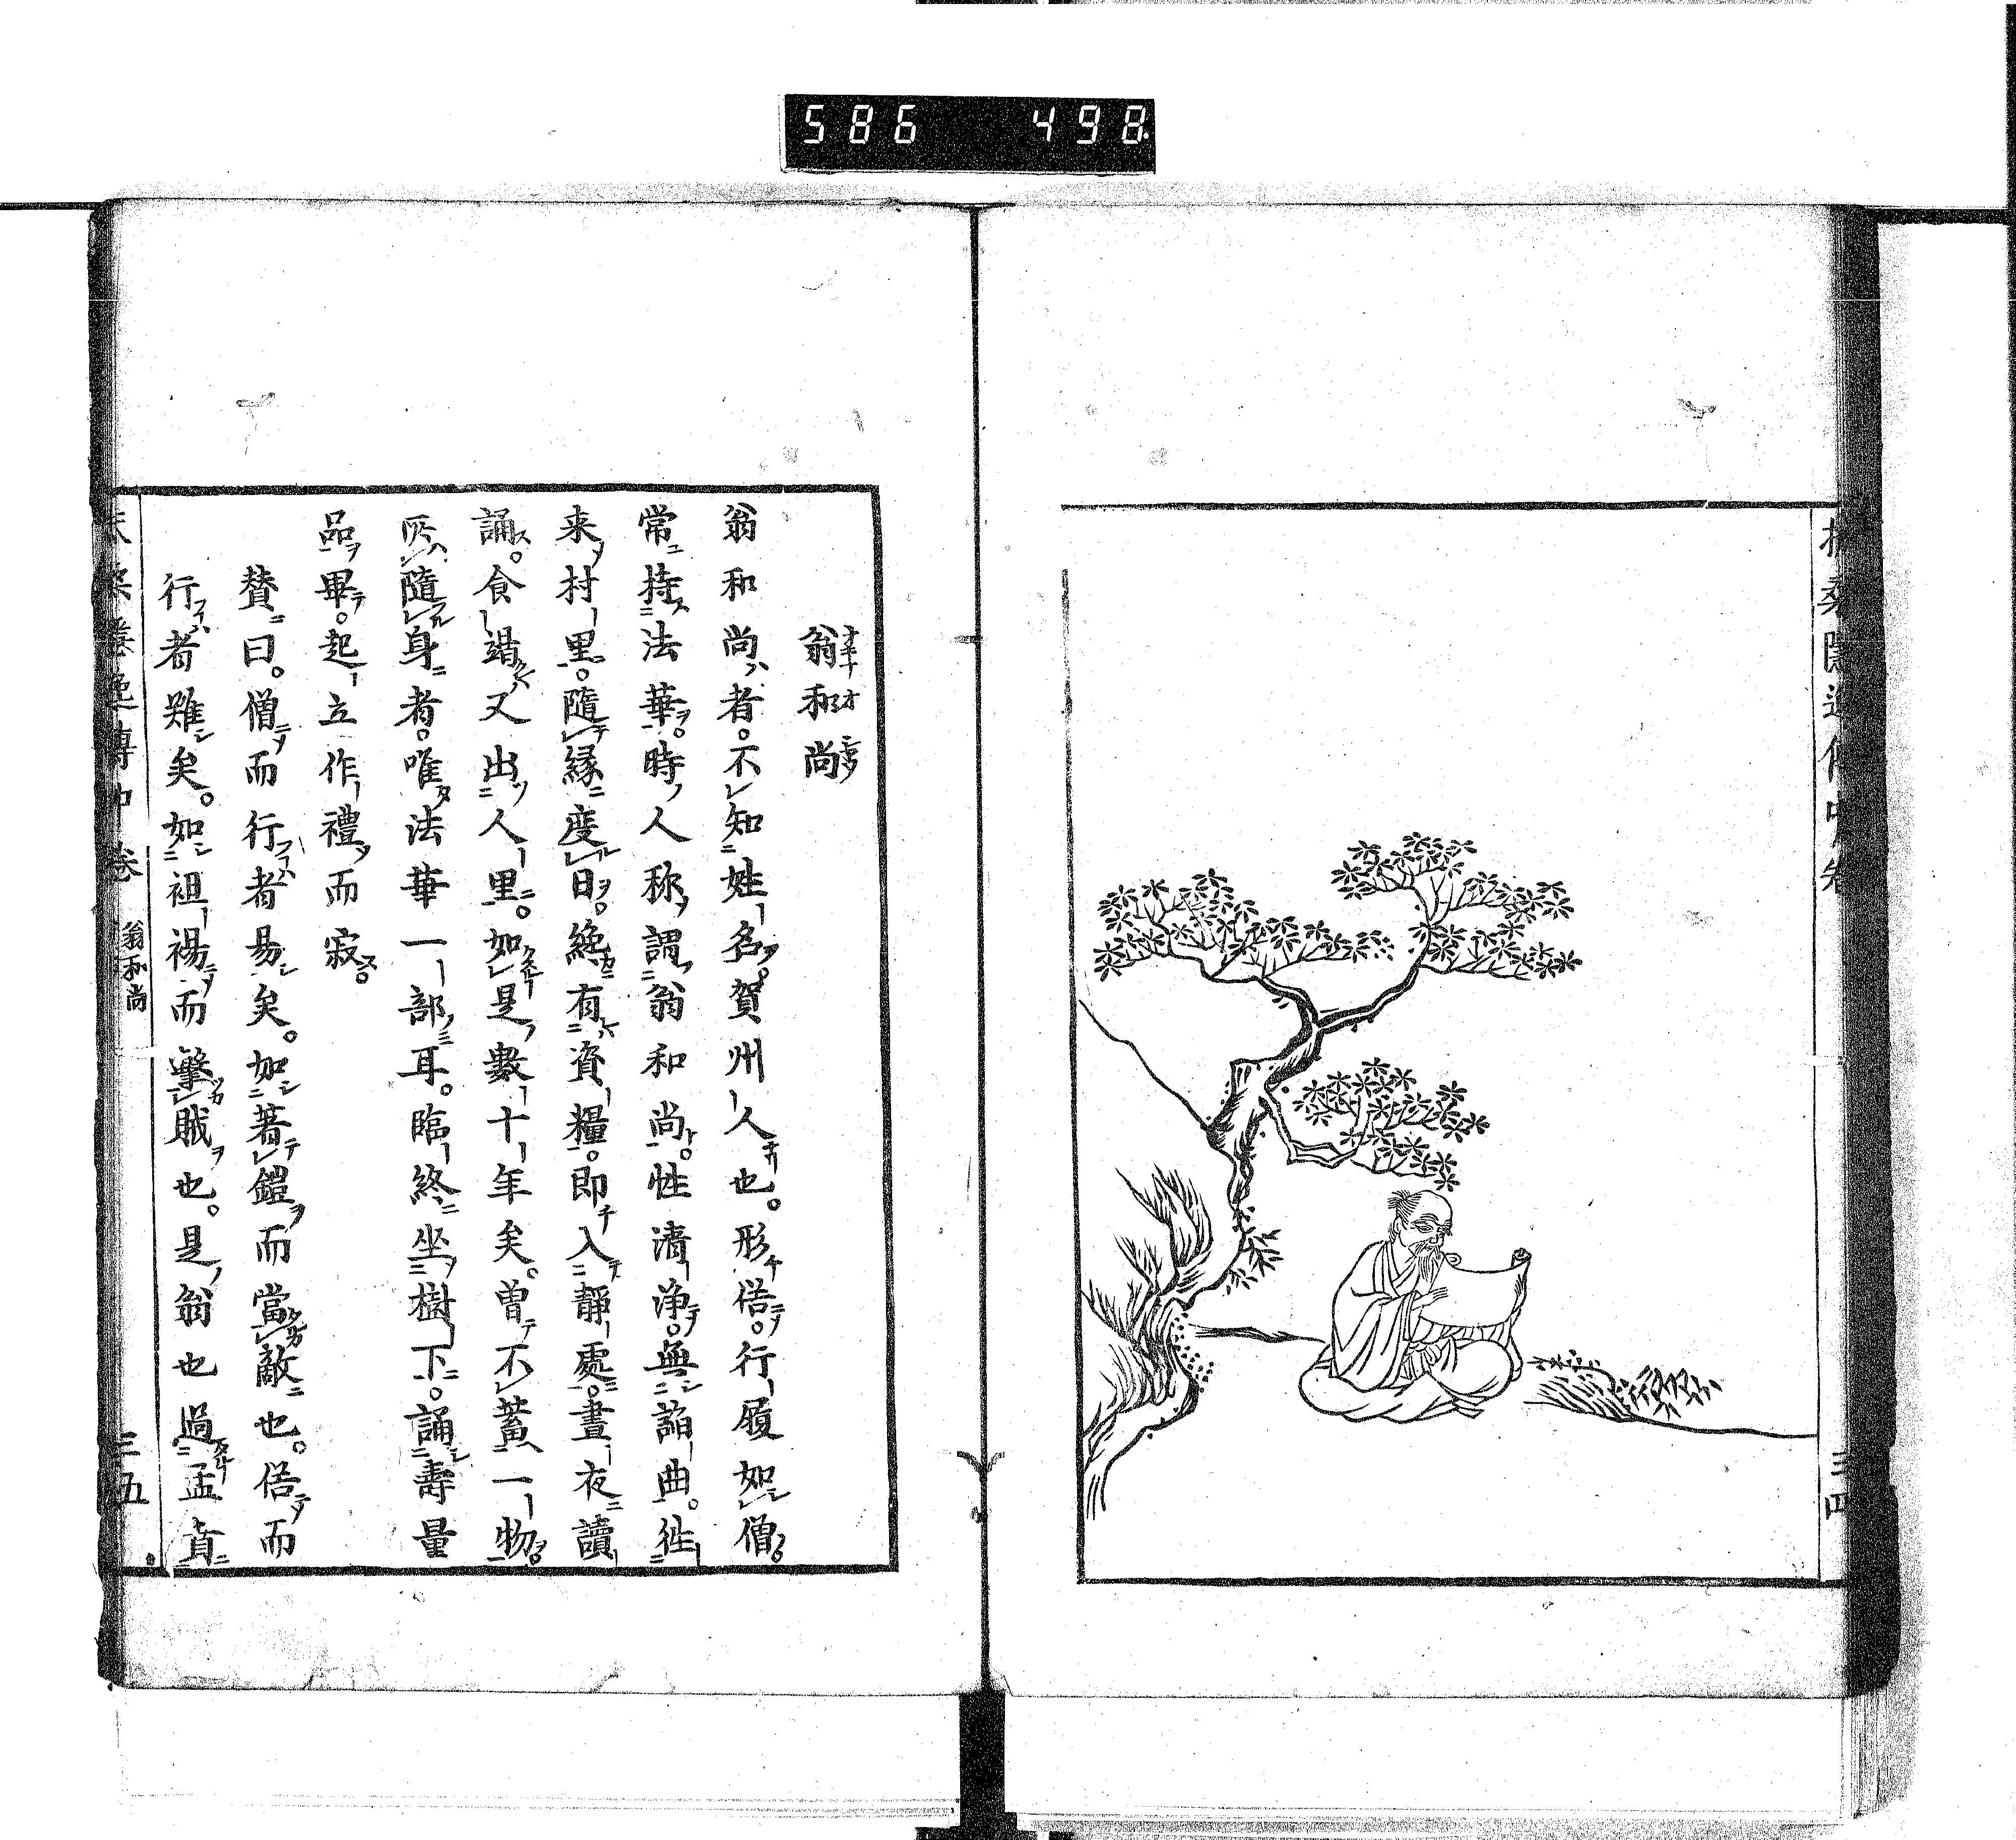 586 498
扶桑隠逸傳中卷
三四
翁和尚
翁和尚者。不知姓名。賀州人也。形俗。行履如僧。
常持法華。時人称謂翁和尚。性清浄。無諂曲。徃
来村里。隨縁度日。纔有資糧。即入靜處。晝夜讀
誦。食竭又出人里。如是數十年矣。曽不蓄一物。
所隨身者。唯法華一部耳。臨終坐樹下。誦壽量
品畢。起立作禮而寂。
賛曰。僧而行者易矣。如著鎧而當敵也。俗而
行者難矣。如袒裼而擊賊也。是翁也過孟賁
扶桑隠逸傳中卷 翁和尚 三五